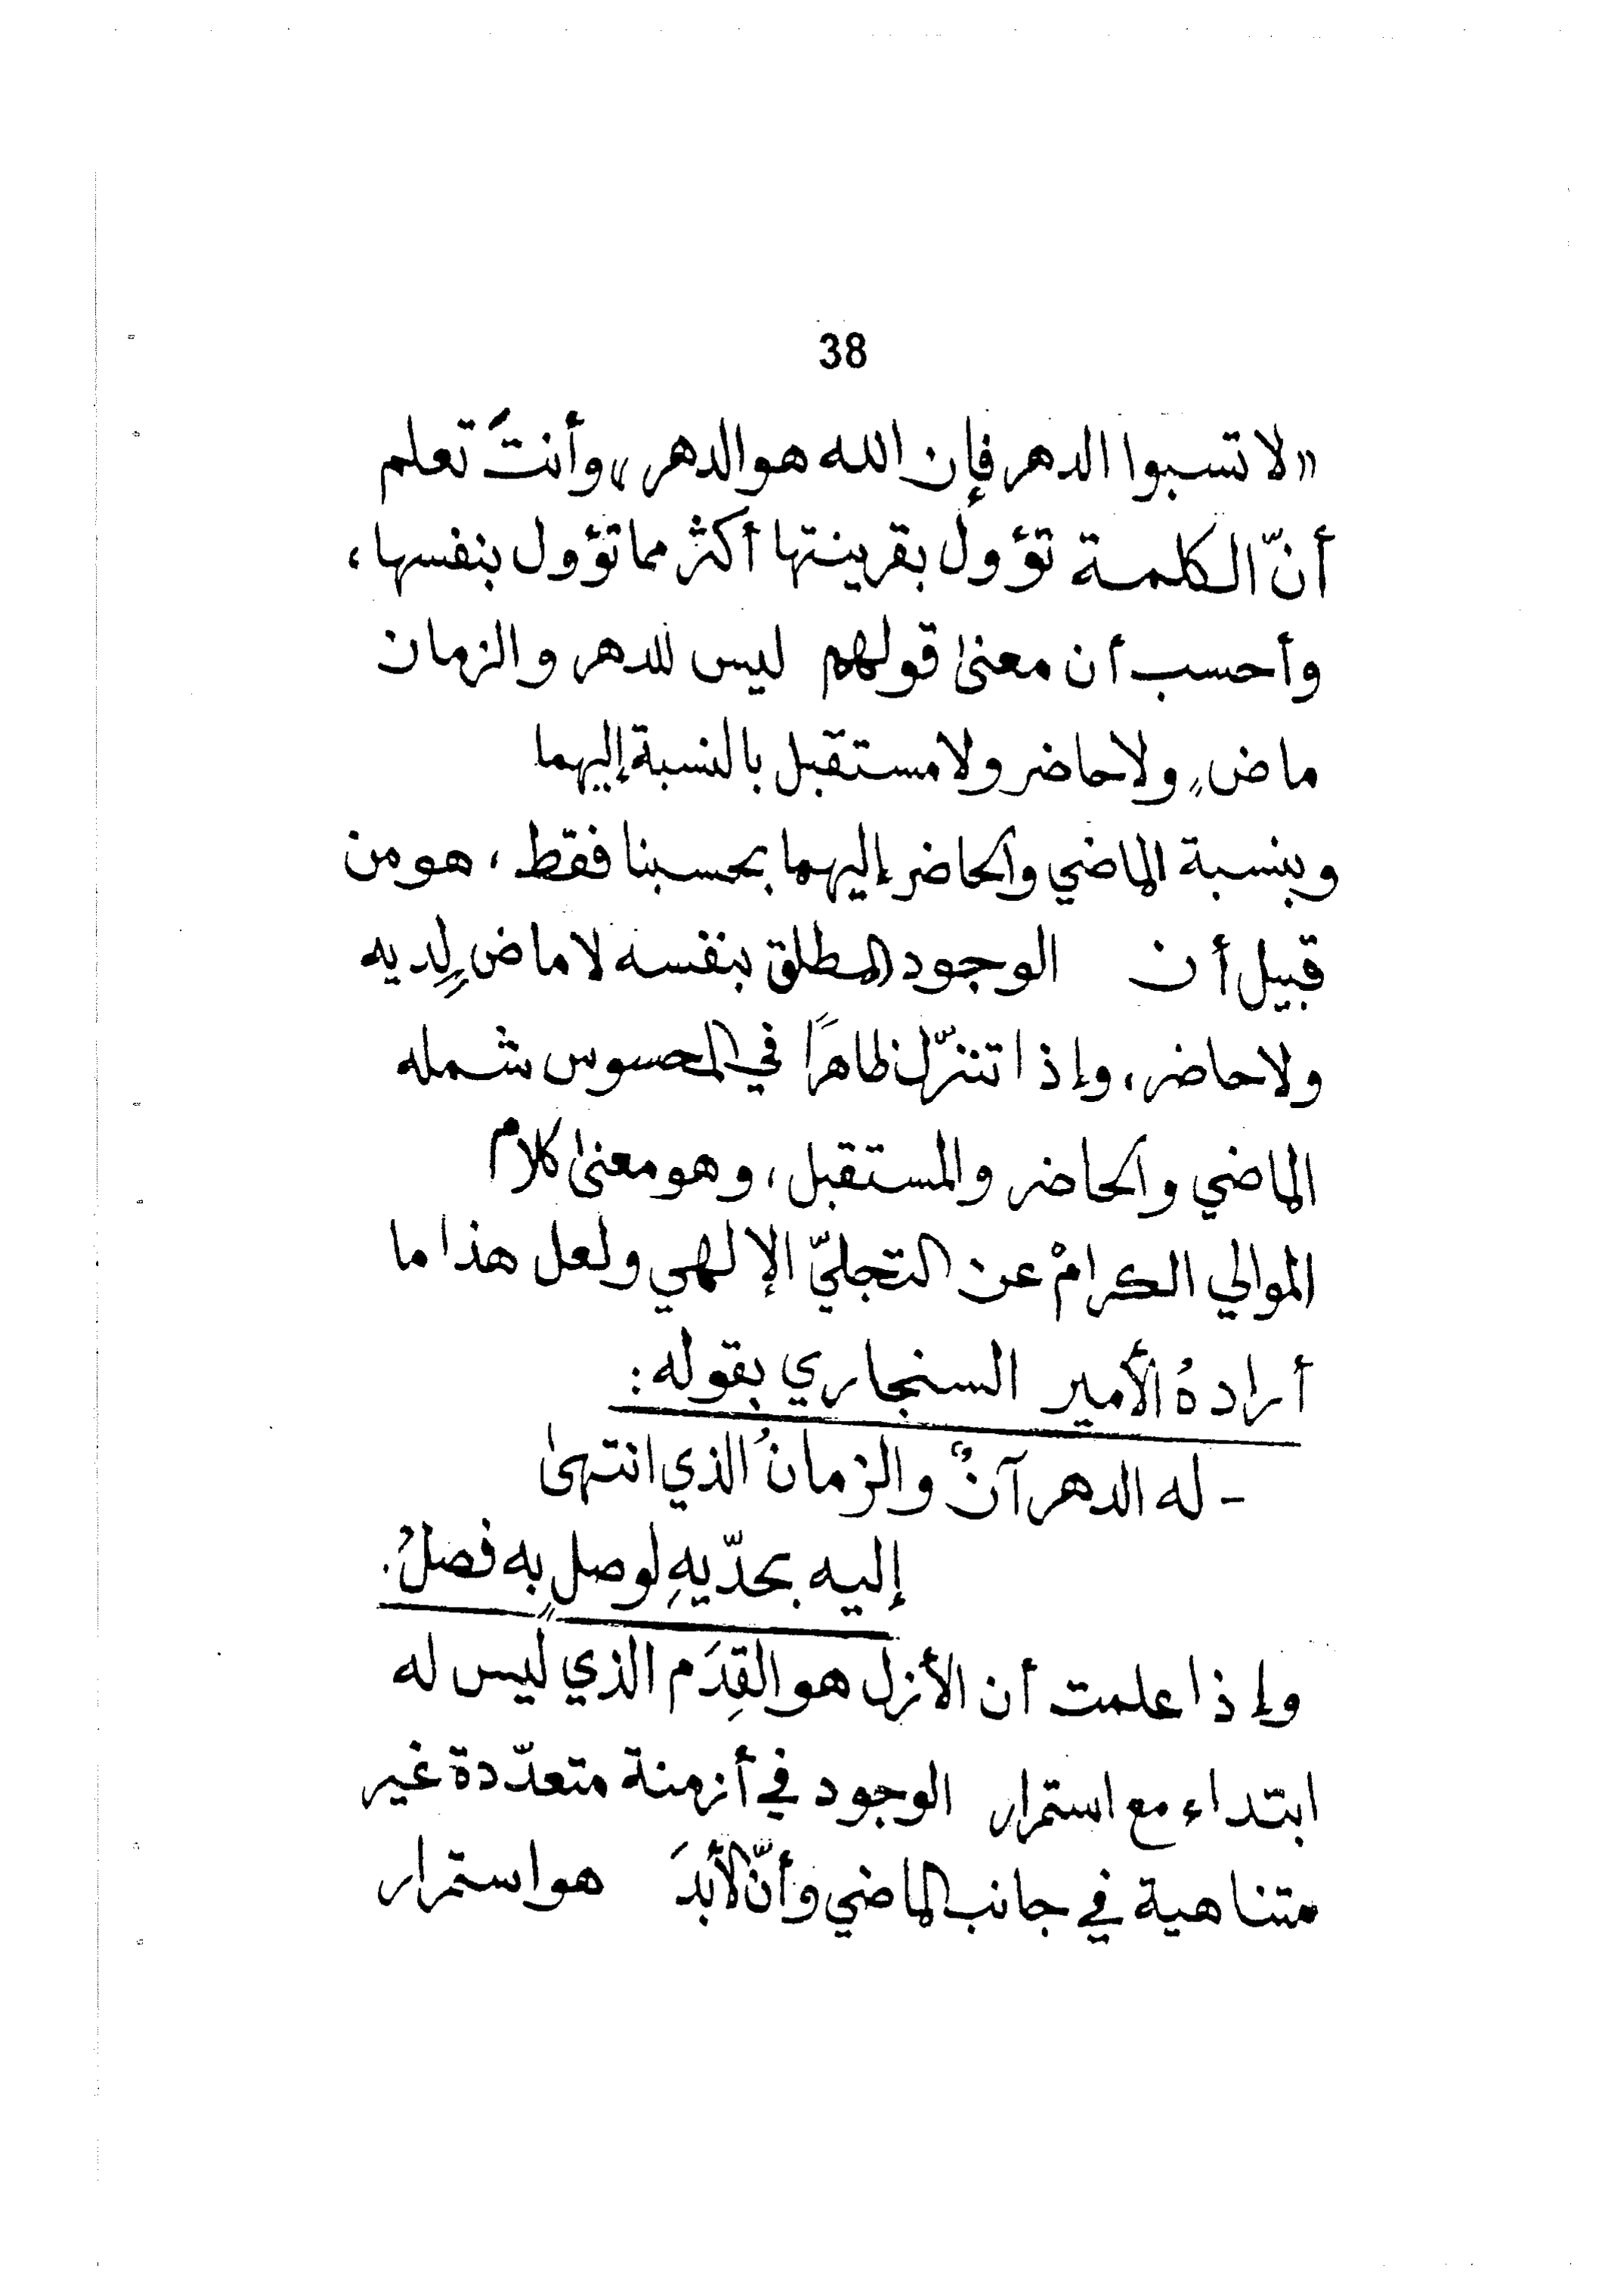 38
«لا تسبوا الدهر فإن الله هو الدهر»، وأنتَ تعلم
أنّ الكلمة تؤول بقرينتها أكثر مما تؤول بنفسها،
وأحسب أن معنىٰ قولهم ليس للدهر والزمان
ماضٍ، ولا حاضر ولا مستقبل بالنسبة إليهما
وبنسبة الماضي والحاضر إليهما بحسبنا فقط، هو من
قبيل أن الوجود المطلق بنفسه لا ماضٍ لديه
ولا حاضر، وإذا تنزّل ظاهراً في المحسوس شمله
الماضي والحاضر والمستقبل، وهو معنىٰ كلام
الموالي الكرامْ عن التجليّ الإلهي ولعل هذا ما
أرادهُ الأمير السنجاري بقوله:
- له الدهر آنٌ والزمانُ الذي انتهىٰ
إليه بحدّيهِ لوصلٍ به فصلُ.
وإذا علمت أن الأزل هو القِدَم الذي ليس له
ابتداء مع استمرار الوجود في أزمنة متعدّدة غير
متناهية في جانب الماضي وأنّ الأبدَ هو استمرار